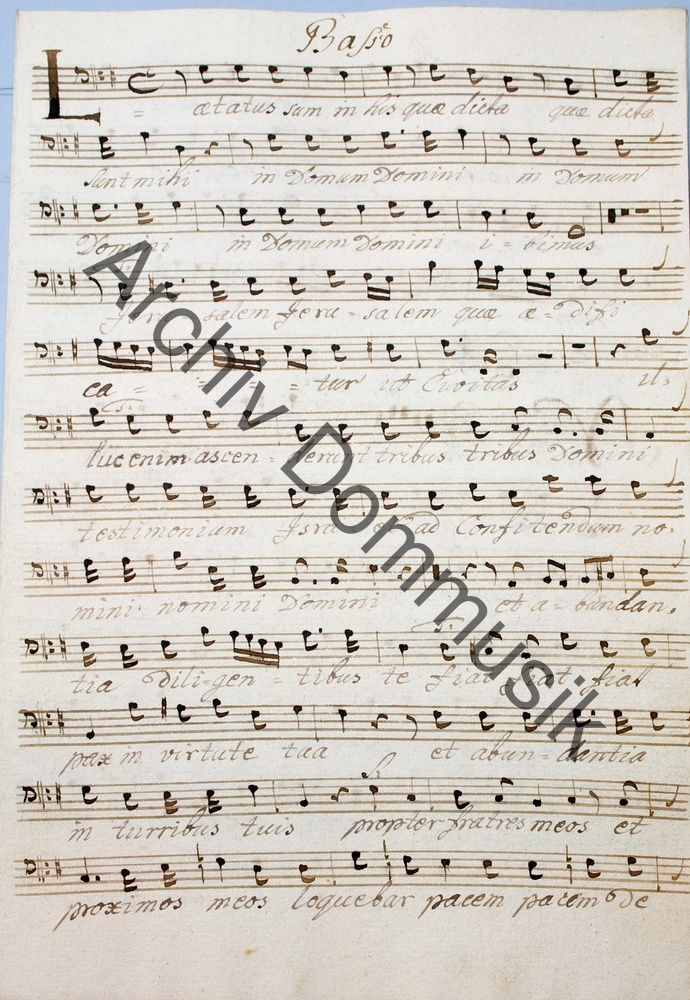 Basso
Lætatus sum in his quæ dicta quæ dicta
sunt mihi in Domum Domini in Domum
Domini in Domum Domini i = bimus
Jeru salem Jeru - salem quæ æ = difi
ca = = = tur ut Civitas il =
luc enim ascen = derunt tribus tribus Domini
testimonium Isra el ad Confitendum no =
mini nomini Domini et a = bundan =
tia diligen = tibus te fiat fiat fiat
pax in virtute tua et abun = dantia
in turribus tuis propter fratres meos et
proximos meos loquebar pacem pacem de
Archiv Dommusik